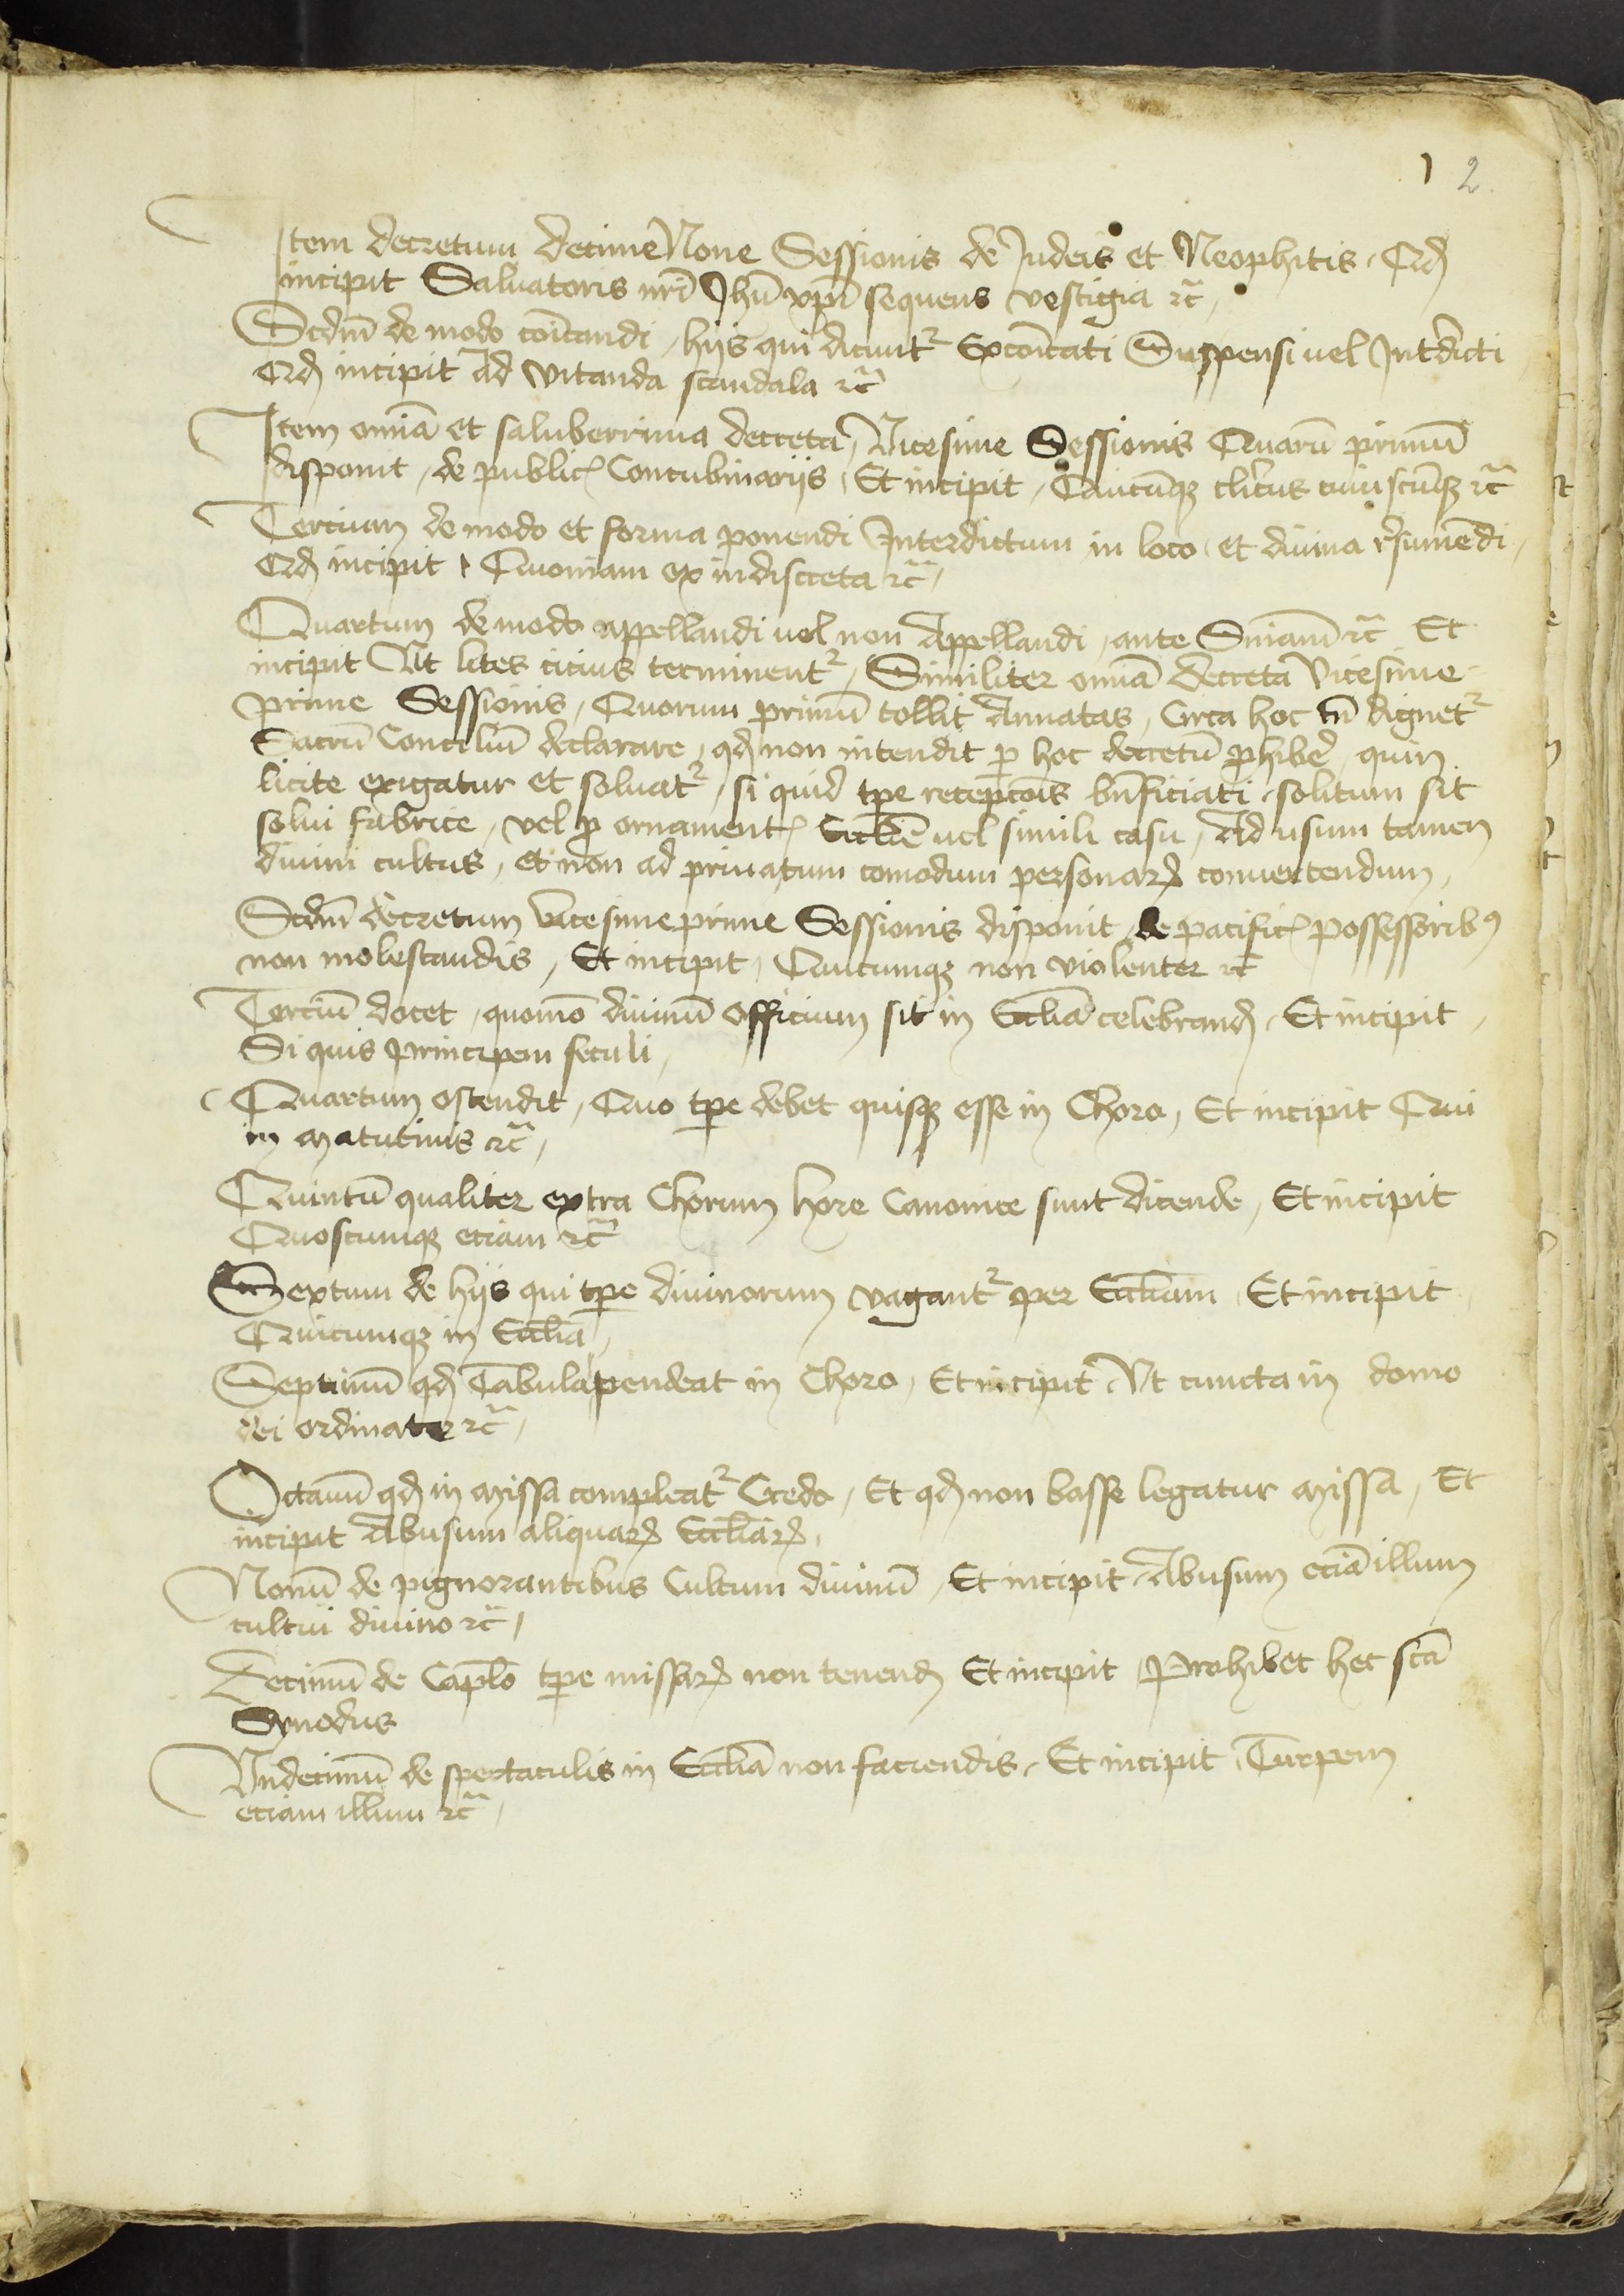 1 2
Item decretum decime None Sessionis de Judeis et Neophitis. Qd
incipit Saluatoris nrī Jhū xpī sequens vestigia rc̄,
Scdm̄ de modo coīcandi, hijs qui dicunt² Excoīcati Suspensi uel Intdicti
Qd incipit Ad vitanda scandala rc̄
Item omīa et saluberrima decreta, Vicesime Sessionis Quarū primū
disponit, de public Concubinarijs, Et incipit, Quicūqꝫ clicus cuiuscūqꝫ rc̄
Tercium de modo et forma ponendi Interdictum in loco et diuina rsumēdi,
Qd incipit, Quoniam ex indiscreta rc̄,
Quartum de modo appellandi uel non Appellandi, ante Sniam̄ rc̄ Et
incipit Ut lites citius terminent², Similiter omīa decreta Vicesime
prime Sessionis, Quorum primū tollit Annatas, Circa hoc tn̄ dignet²
Sacrū Conciliū declarare, qd non intendit ꝑ hoc decretū ꝓhibe, quin
licite exigatur et soluat², si quid tꝑe recepcōis bn̄ficiati solitum sit
solui fabrice, vel ꝓ ornament Eccliē uel simili casu, Ad usum tamen
diuini cultus, et non ad priuatum comodum personarꝝ conuertendum,
Scdm̄ decretum vicesimeprime Sessionis disponit, de pacific possessoribꝰ
non molestandis, Et incipit, Quicumqꝫ non violenter rc̄
Terciū docet, quomō diuinū officium sit in Eccliā celebrand, Et incipit,
Si quis principem seculi,
Quartum ostendit, Quo tꝑe debet quisqꝫ esse in Choro, Et incipit Qui
in matutinis rc̄,
Quintū qualiter extra Chorum hore Canonice sunt dicende, Et incipit
Quoscumqꝫ eciam rc̄
Sextum de hijs qui tꝑe diuinorum vagant² per Eccliam, Et incipit
Quicumqꝫ in Eccliā,
Septimū qd Tabula pendeat in Choro, Et incipit Vt cuncta in domo
dei ordinate rc̄,
Octauū qd in missa compleat² Credo, Et qd non basse legatur missa, Et
incipit Abusum aliquarꝝ Eccliarꝝ,
Nonū de pignorantibus Cultum diuinū, Et incipit Abusum eciā illum
cultui diuino rc̄,
Decimū de Caplo tꝑe missarꝝ non tenend Et incipit, Prohibet hec scā
Synodus
Vndecimū de spectaculis in Eccliā non faciendis, Et incipit, Turpem
eciam illum rc̄,